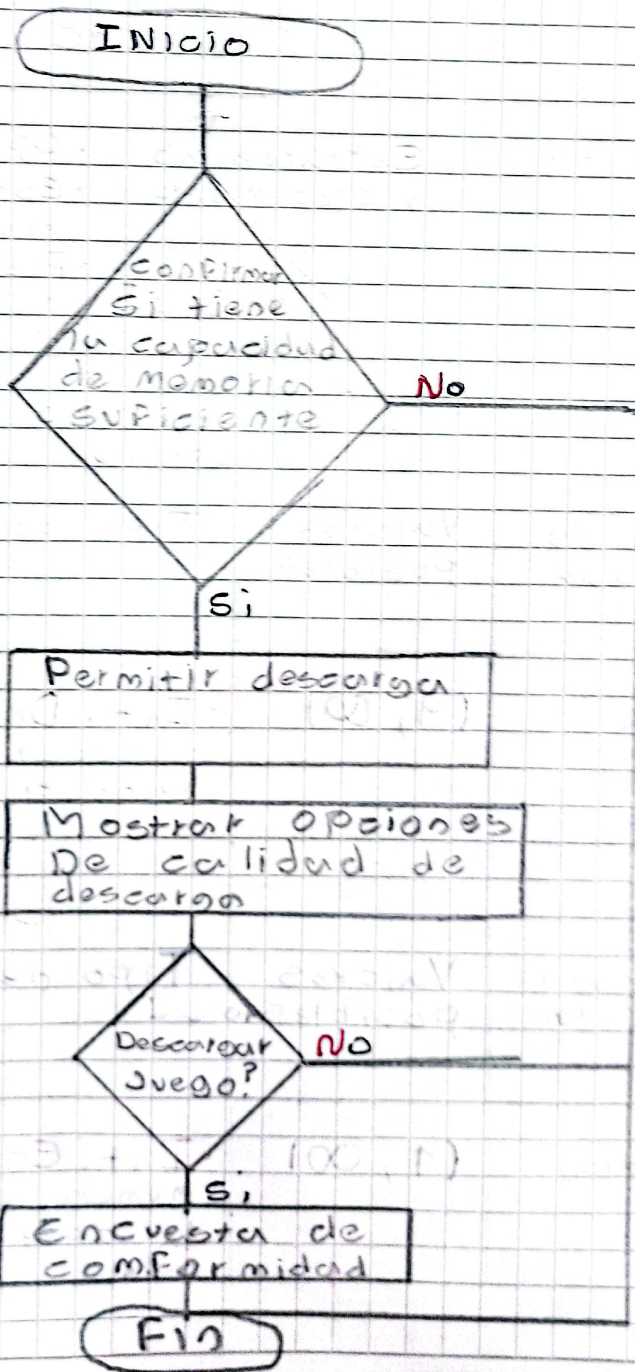 INicio
confirmar
Si tiene
la capacidad
de memoria
suficiente
No
Si
Permitir descarga
Mostrar opciones
De calidad de
descarga
Descargar
Juego?
No
Si
Encuesta de
comformidad
Fin